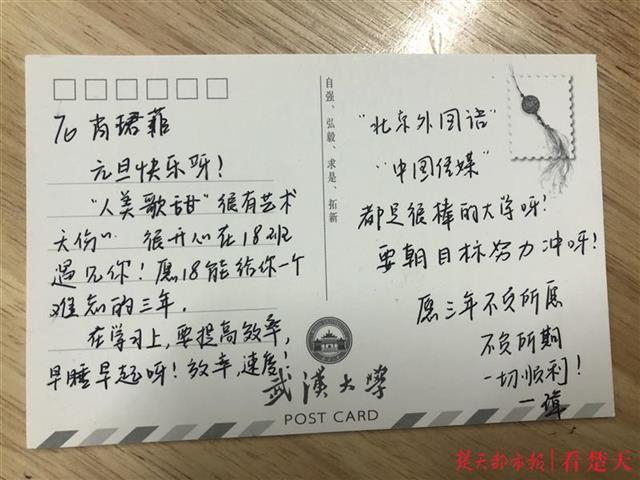 To 肖珺菲
元旦快乐呀!
"人美歌甜"很有艺术
天份ü 很开心在18班
遇见你!愿18能给你一个
难忘的三年.
在学习上,要提高效率,
早睡早起呀!效率,速度!
自强、弘毅、求是、拓新
"北京外国语"
"中国传媒"
都是很棒的大学呀!
要朝目标努力冲呀!
愿三年不负所愿
不负所期
一切顺利!
一璋
武漢大學
POST CARD
楚天都市报|看楚天